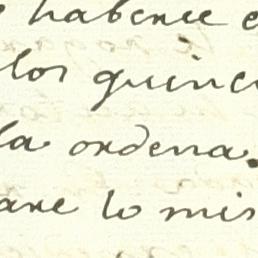 haberse e
los quince
la ordena.
are lo mis